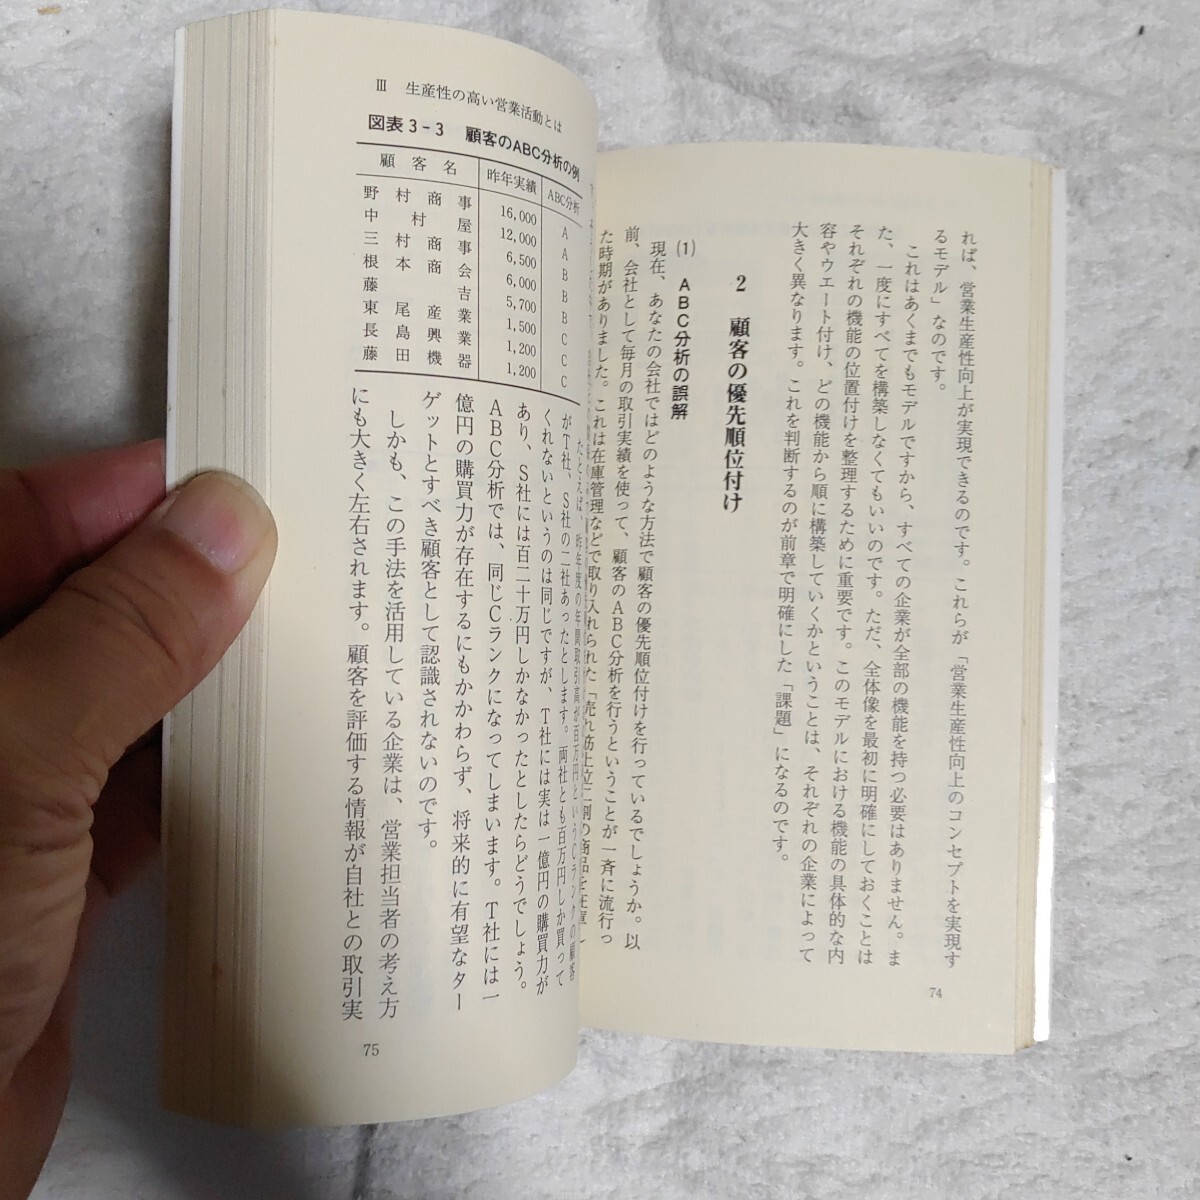 れば、営業生産性向上が実現できるのです。これらが「営業生産性向上のコンセプトを実現す
るモデル」なのです。
これはあくまでもモデルですから、すべての企業が全部の機能を持つ必要はありません。ま
た、一度にすべてを構築しなくてもいいのです。ただ、全体像を最初に明確にしておくことは
それぞれの機能の位置付けを整理するために重要です。このモデルにおける機能の具体的な内
容やウエート付け、どの機能から順に構築していくかということは、それぞれの企業によって
大きく異なります。これを判断するのが前章で明確にした「課題」になるのです。
2 顧客の優先順位付け
(1) ABC分析の誤解
現在、あなたの会社ではどのような方法で顧客の優先順位付けを行っているでしょうか。以
前、会社として毎月の取引実績を使って、顧客のABC分析を行うということが一斉に流行っ
た時期がありました。これは在庫管理などで取り入れられた「売れ筋上位二割の商品を在庫し
74
Ⅲ 生産性の高い営業活動とは
図表3-3 顧客のABC分析の例
顧客名 昨年実績 ABC分析
野村商事 16,000 A
中村屋 12,000 A
三村商事 6,500 B
根本商会 6,000 B
藤吉 5,700 B
東尾産業 1,500 C
長島興業 1,200 C
藤田機器 1,200 C
たとえば、昨年度の年間取引高が百万円というCランクの顧客
がT社、S社の二社あったとします。両社とも百万円しか買って
くれないというのは同じですが、T社には実は一億円の購買力が
あり、S社には百二十万円しかなかったとしたらどうでしょう。
ABC分析では、同じCランクになってしまいます。T社には一
億円の購買力が存在するにもかかわらず、将来的に有望なター
ゲットとすべき顧客として認識されないのです。
しかも、この手法を活用している企業は、営業担当者の考え方
にも大きく左右されます。顧客を評価する情報が自社との取引実
75